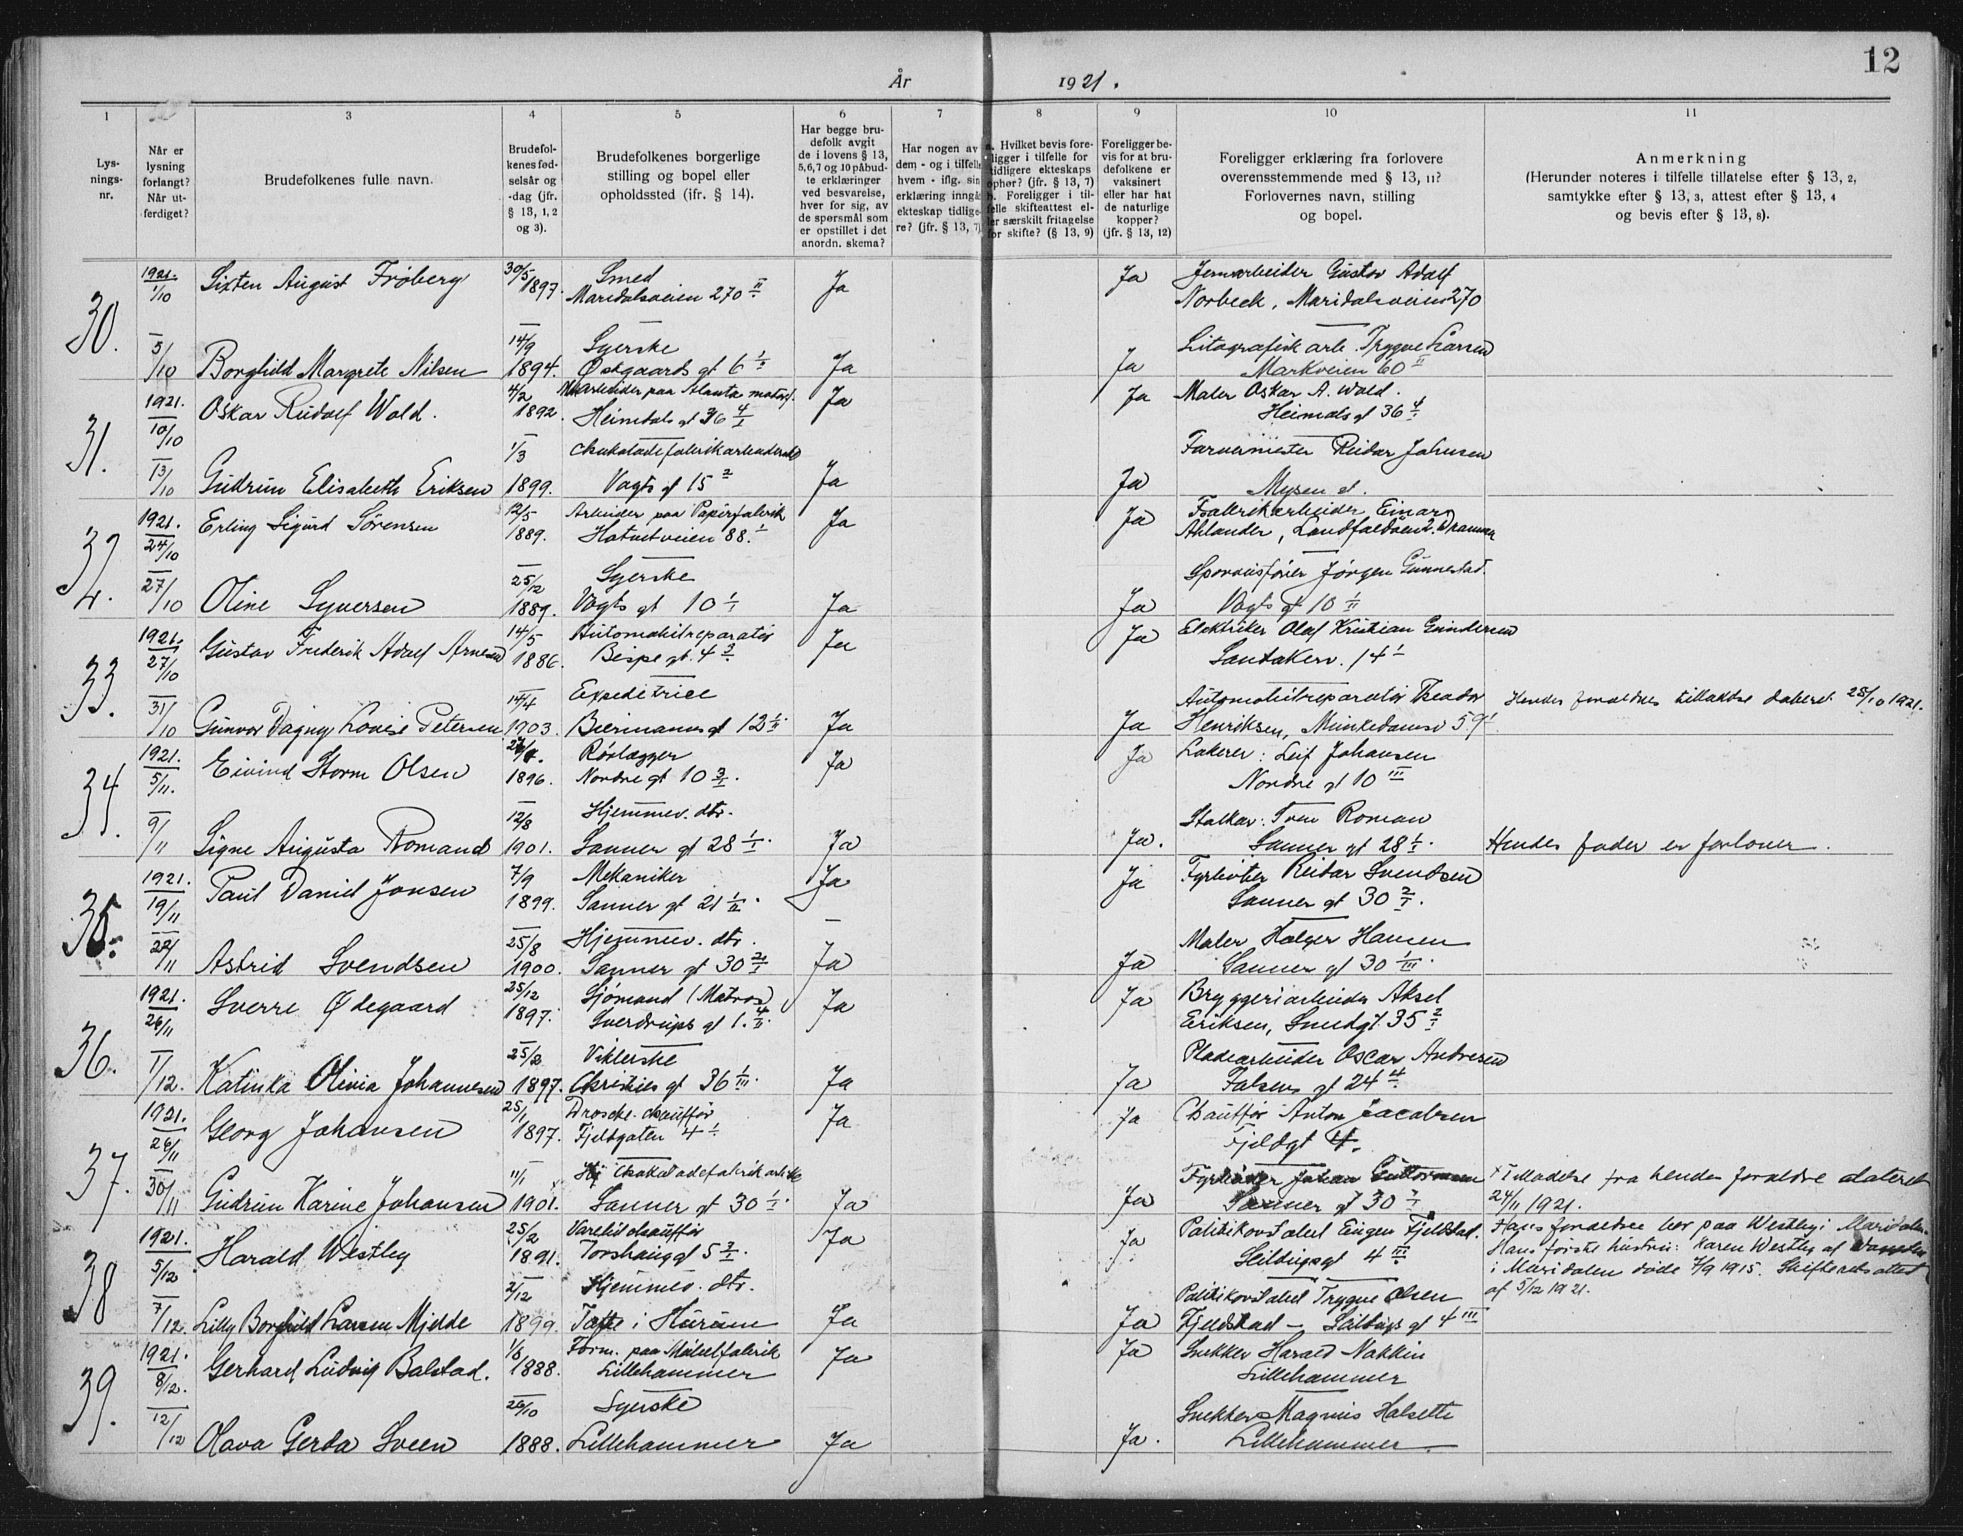 12
År 1921.
1 2 3 4 5 6 7 8 9 10 11
Lys-
nings-
nr.
Når er
lysning
forlangt?
Når ut-
ferdiget?
Brudefolkenes fulle navn.
Brudefol-
kenes fød-
selsår og
-dag (jfr.
§ 13, 1, 2
og 3).
Brudefolkenes borgerlige
stilling og bopel eller
opholdssted (ifr. § 14).
Har begge bru-
defolk avgit
de i lovens § 13,
5,6,7 og 10 påbud-
te erklæringer
ved besvarelse,
hver for sig, av
de spørsmål som
er opstillet i det
anordn. skema?
Har nogen av
dem - og i tilfelle
hvem - iflg. sin
erklæring inngå
ekteskap tidlige-
re? (jfr. § 13, 7)
a. Hvilket bevis fore-
ligger i tilfelle for
tidligere ekteskaps
ophør? (jfr. § 13, 7)
b. Foreligger i til-
felle skifteattest el-
ler særskilt fritagelse
for skifte? (§ 13, 9)
Foreligger be-
vis for at bru-
defolkene er
vaksinert
eller har hat
de naturlige
kopper?
(jfr. § 13, 12)
Foreligger erklæring fra forlovere
overensstemmende med § 13, 11?
Forlovernes navn, stilling
og bopel.
Anmerkning
(Herunder noteres i tilfelle tillatelse efter § 13, 2,
samtykke efter § 13, 3, attest efter § 13, 4
og bevis efter § 13, 8).
30.
1921. 1/10 Sixten August Frøberg 30/5 1897. Smed Ja Ja Jernarbeider Gustav Adolf
Maridalsveien 270 II Norbeck, Maridalsveien 270
5/10 14/9 Syerske Litografisk arb. Trygve Larsen
Borghild Margrete Nilsen 1894. Østgaards gt 6 Ja Ja Markveien 60 II
31.
1921. 10/10 Oskar Rudolf Wold. 4/2 1892. arbeider paa Atlanta Ja Ja Maler Oskar A. Wold.
Heimdals gt 36 4/I Heimdals gt 36 4/I
13/10 1/3 Chokoladefabrikarbeiderske Farvermester Reidar Johnsen
Gudrun Elisabeth Eriksen 1899. Vogts gt 15 2 Ja Ja Mysen st.
32.
1921. 24/10 Erling Sigurd Sørensen 12/5 1889. Arbeider paa Papirfabrik Ja Ja Fabrikarbeider Einar
88. Ahlander,
27/10 25/12 Syerske Sporveisfører Jørgen Gunnestad.
Oline Syversen 1889. Vogts gt 10 1/I Ja Ja Vogts gt 10 1/II
33.
1921. 27/10 Gustav Frederik Adolf Arnesen 14/5 1886. Automobilreparatør Ja Ja Elektriker Olaf Kristian Gundersen
Bispe gt. 4 3 Sandakerv. 14 I
31/10 14/4 Expeditrice Automobilreparatør Theodor Hendes forældres tillatelse dateret 25/10 1921.
Gunvor Dagny Lovise Petersen 1903. Biermanns gt 12 1/II Ja Ja Henriksen, Munkedamsv 59 I
34.
1921. 5/11. Eivind Storm Olsen 1896. Rørlægger Ja Ja Lakerer: Leif Johansen
Nordre gt 10 3/I. Nordre gt 10 III
9/11 12/8 Hjemmev. dtr.
Signe Augusta Romand 1901. Sanner gt 28 1/I. Ja Ja. Roman Sanner gt 28 1/I. Hendes fader er forlover.
35.
1921. 19/11 Paul Daniel Jonsen 7/9 1899. Mekaniker Ja Ja Fyrbøter Reidar Svendsen
Sanner gt 21 1/II. Sanner gt 30 2/I.
22/11 25/8 Hjemmev. dtr. Maler Holger Hansen
Astrid Svendsen 1900. Sanner gt 30 2/I Ja Ja Sanner gt 30 1/III.
36.
1921. 26/11 Sverre Ødegaard 25/12 1897. Sjømand (Matros) Ja Ja Bryggeriarbeider Aksel
Sverdrups gt 1. 4/II. Eriksen, Smedgt 35 2/I
1/12. 25/2 Viklerske Pladearbeider Oscar Andresen
Katinka Olivia Johannesen 1897. Christies gt 36 1/III. Ja Ja Falsens gt 24 4
37.
1921. 26/11 Georg Johansen 25/1 1897. Drosche. chauffør Ja Ja Chauffør Anton Jacobsen
Fjeldgaten 4 I Fjeldgt 4.
30/11 11/1 Chokoladefabrikarb. Fyrbøder Johan Guttormsen + Tilladelse fra hendes forældre dateret
Gudrun Karine Johansen 1901. Sanner gt 30 1/I. Ja Ja Sanner gt 30 2/I 24/11 1921.
38
1921. 5/12 Harald Westby 25/2 1891. Varebilchauffør Ja Ja Politikonstabel Eugen Fjeldstad. Hans forældre bor paa Westby i Maridalen.
Torshauggt 5 2/I. Seilduksgt 4 III Hans første hustru: Karen Westby af
i Maridalen døde 7/9 1915. Skifteretsattest
af 5/12 1921.
7/12. 2/12 Hjemmev. dtr. Politikonstabel Trygve Olsen
Lilly Borghild Larsen Mjelde 1899. Tofte i Hurum Ja Ja Fjeldstad — Seilduks gt 4 III
39.
1921. 8/12. Gerhard Ludvig Balstad. 1/8 1888. Form. paa Møbelfabrik Ja Ja Snekker Harald Nakkin
Lillehammer Lillehammer
12/12 26/10 Syerske Snekker Magnus Halseth
Olava Gerda Sveen 1888. Lillehammer Ja Ja. Lillehammer